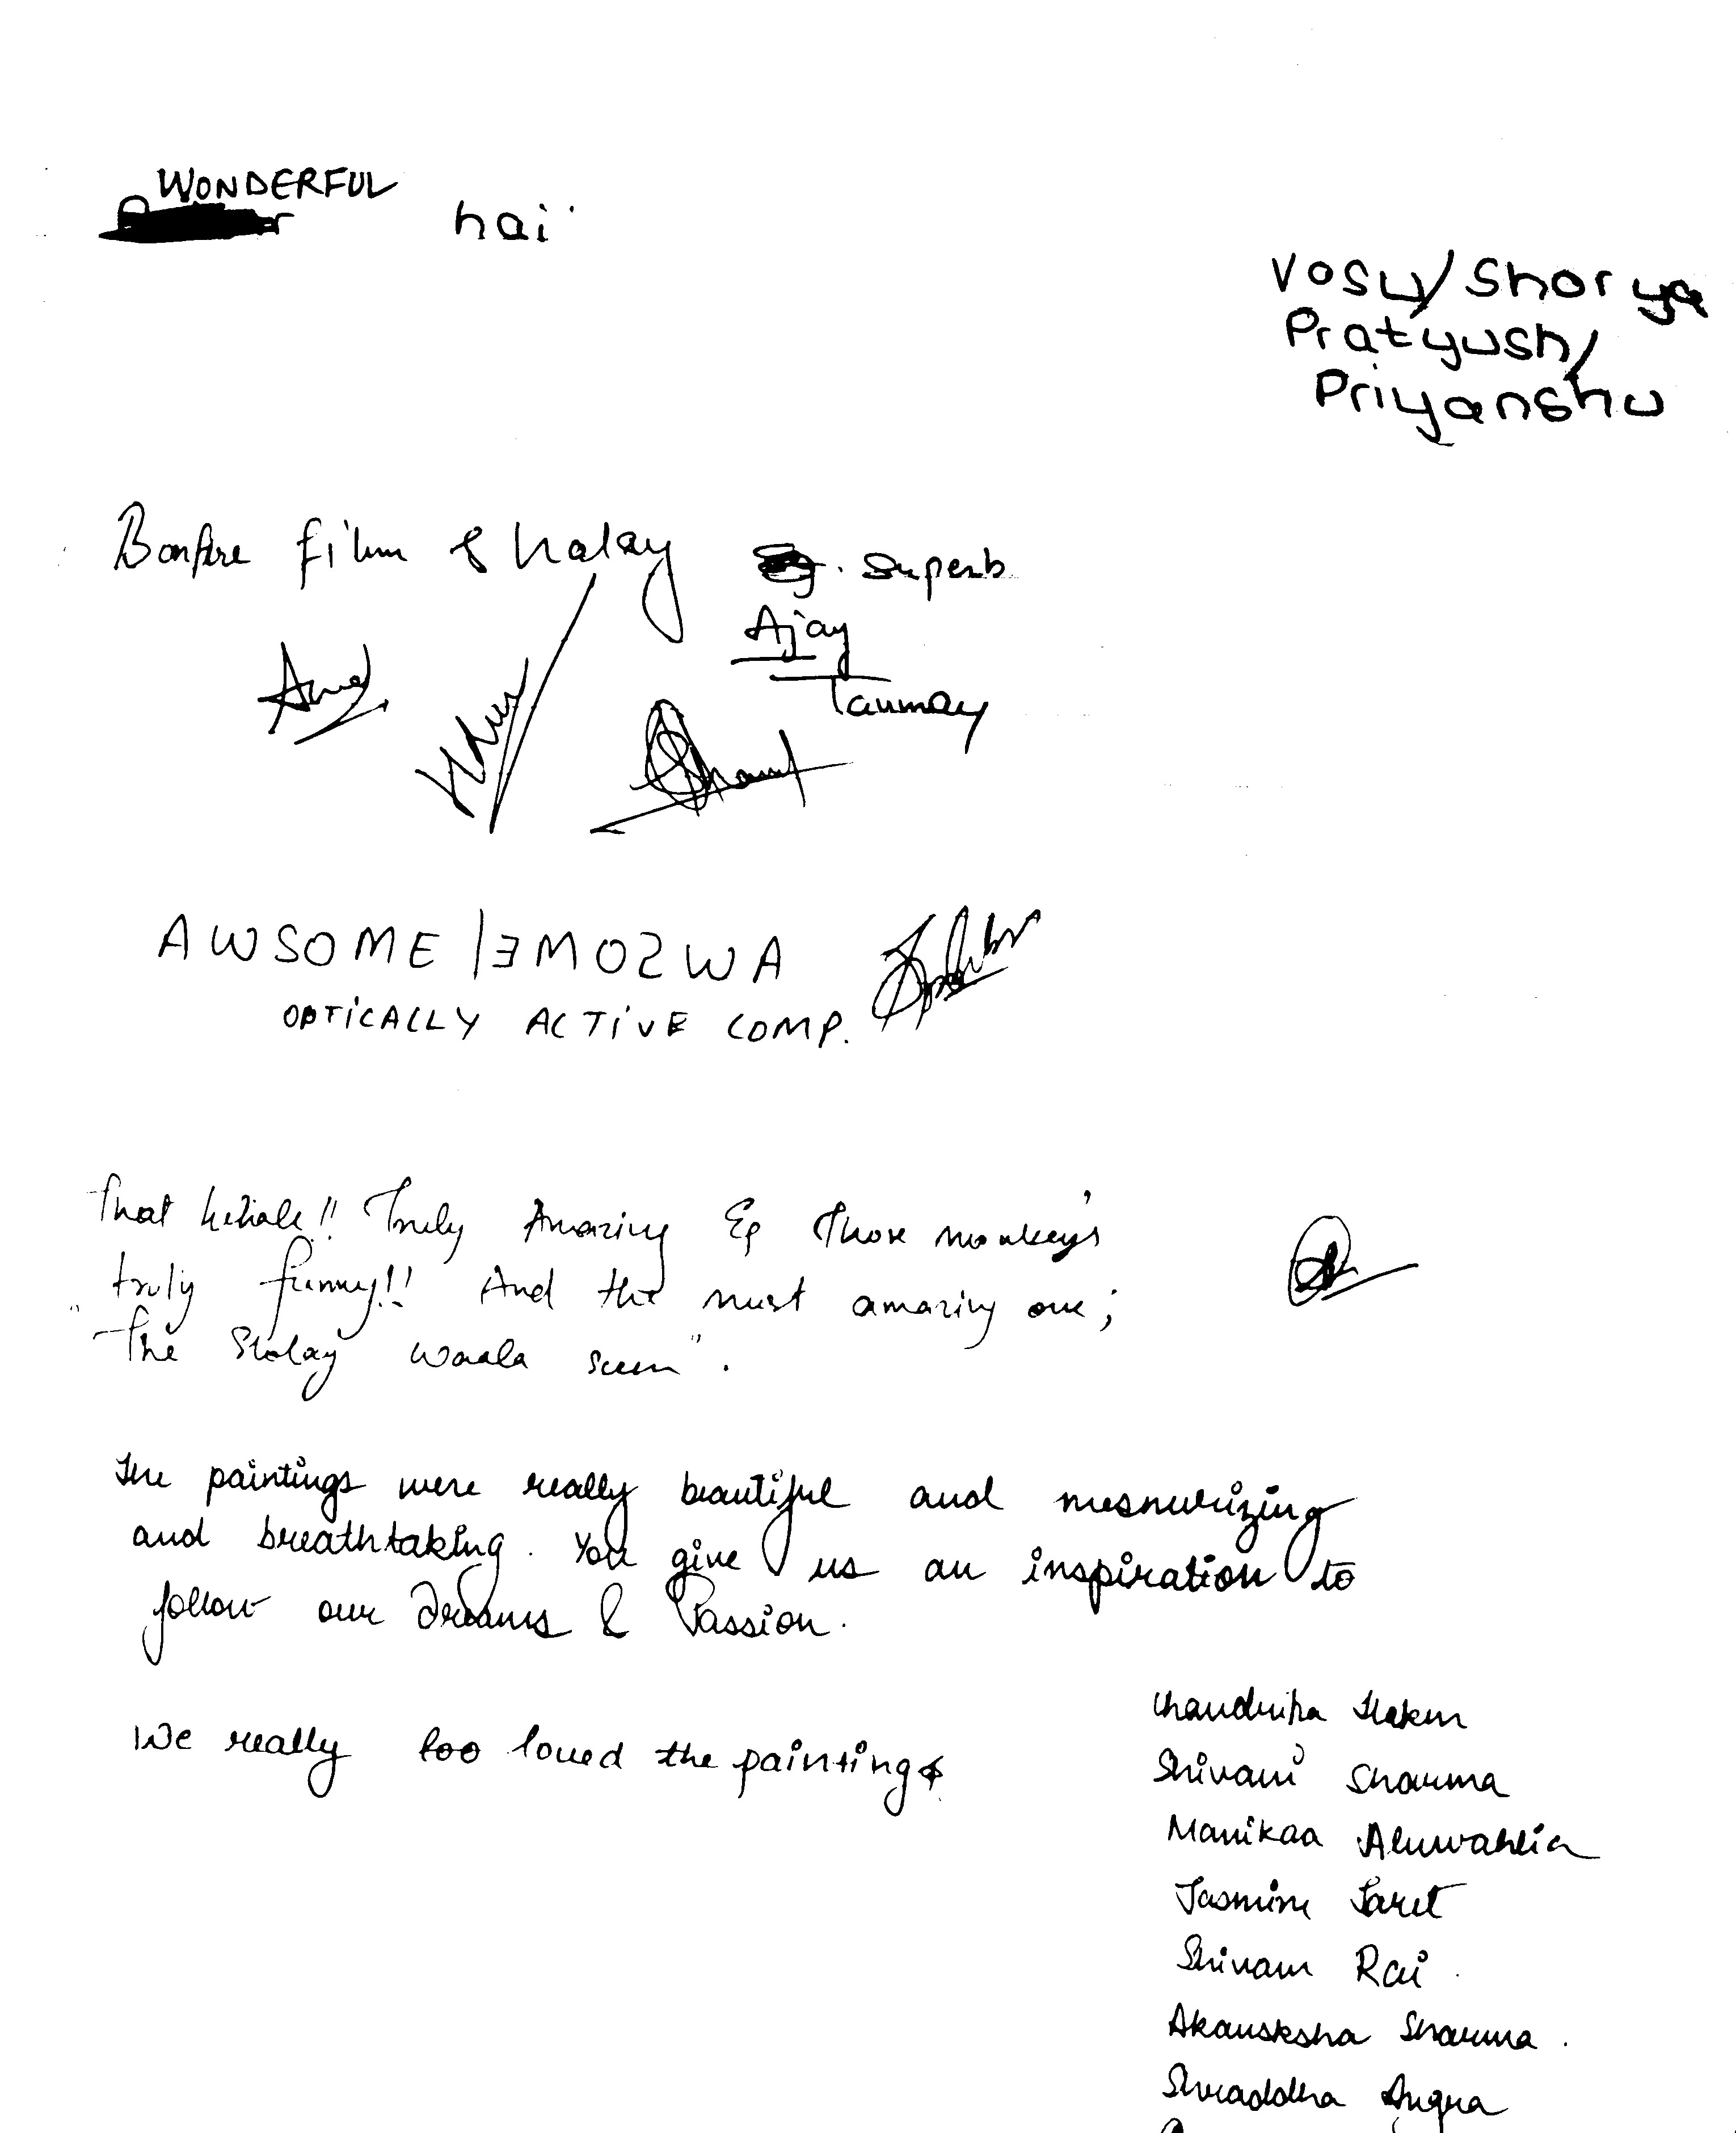 WONDERFUL
hai
Vosu/Shorya
Pratyush/
Priyanshu
Bonfire film Sholay
Superb
Ajay
Tanmay
AWSOME | ƎMOƧWA
OPTiCALLY ACTiVE COMP.
That Truly Amazing & Those monkey's
truly funny!! And the most amazing one;
"The Sholay waala seen".
The paintings were really beautiful and mesmurizing
and breathtaking. You give us an inspiration to
follow our dreams & Passion.
We really too loved the paintings
Shivani Sharma
Manikaa Aluwahlia
Jasmine
Shivam Rai.
Akansksha Sharma.
Shraddha Angra